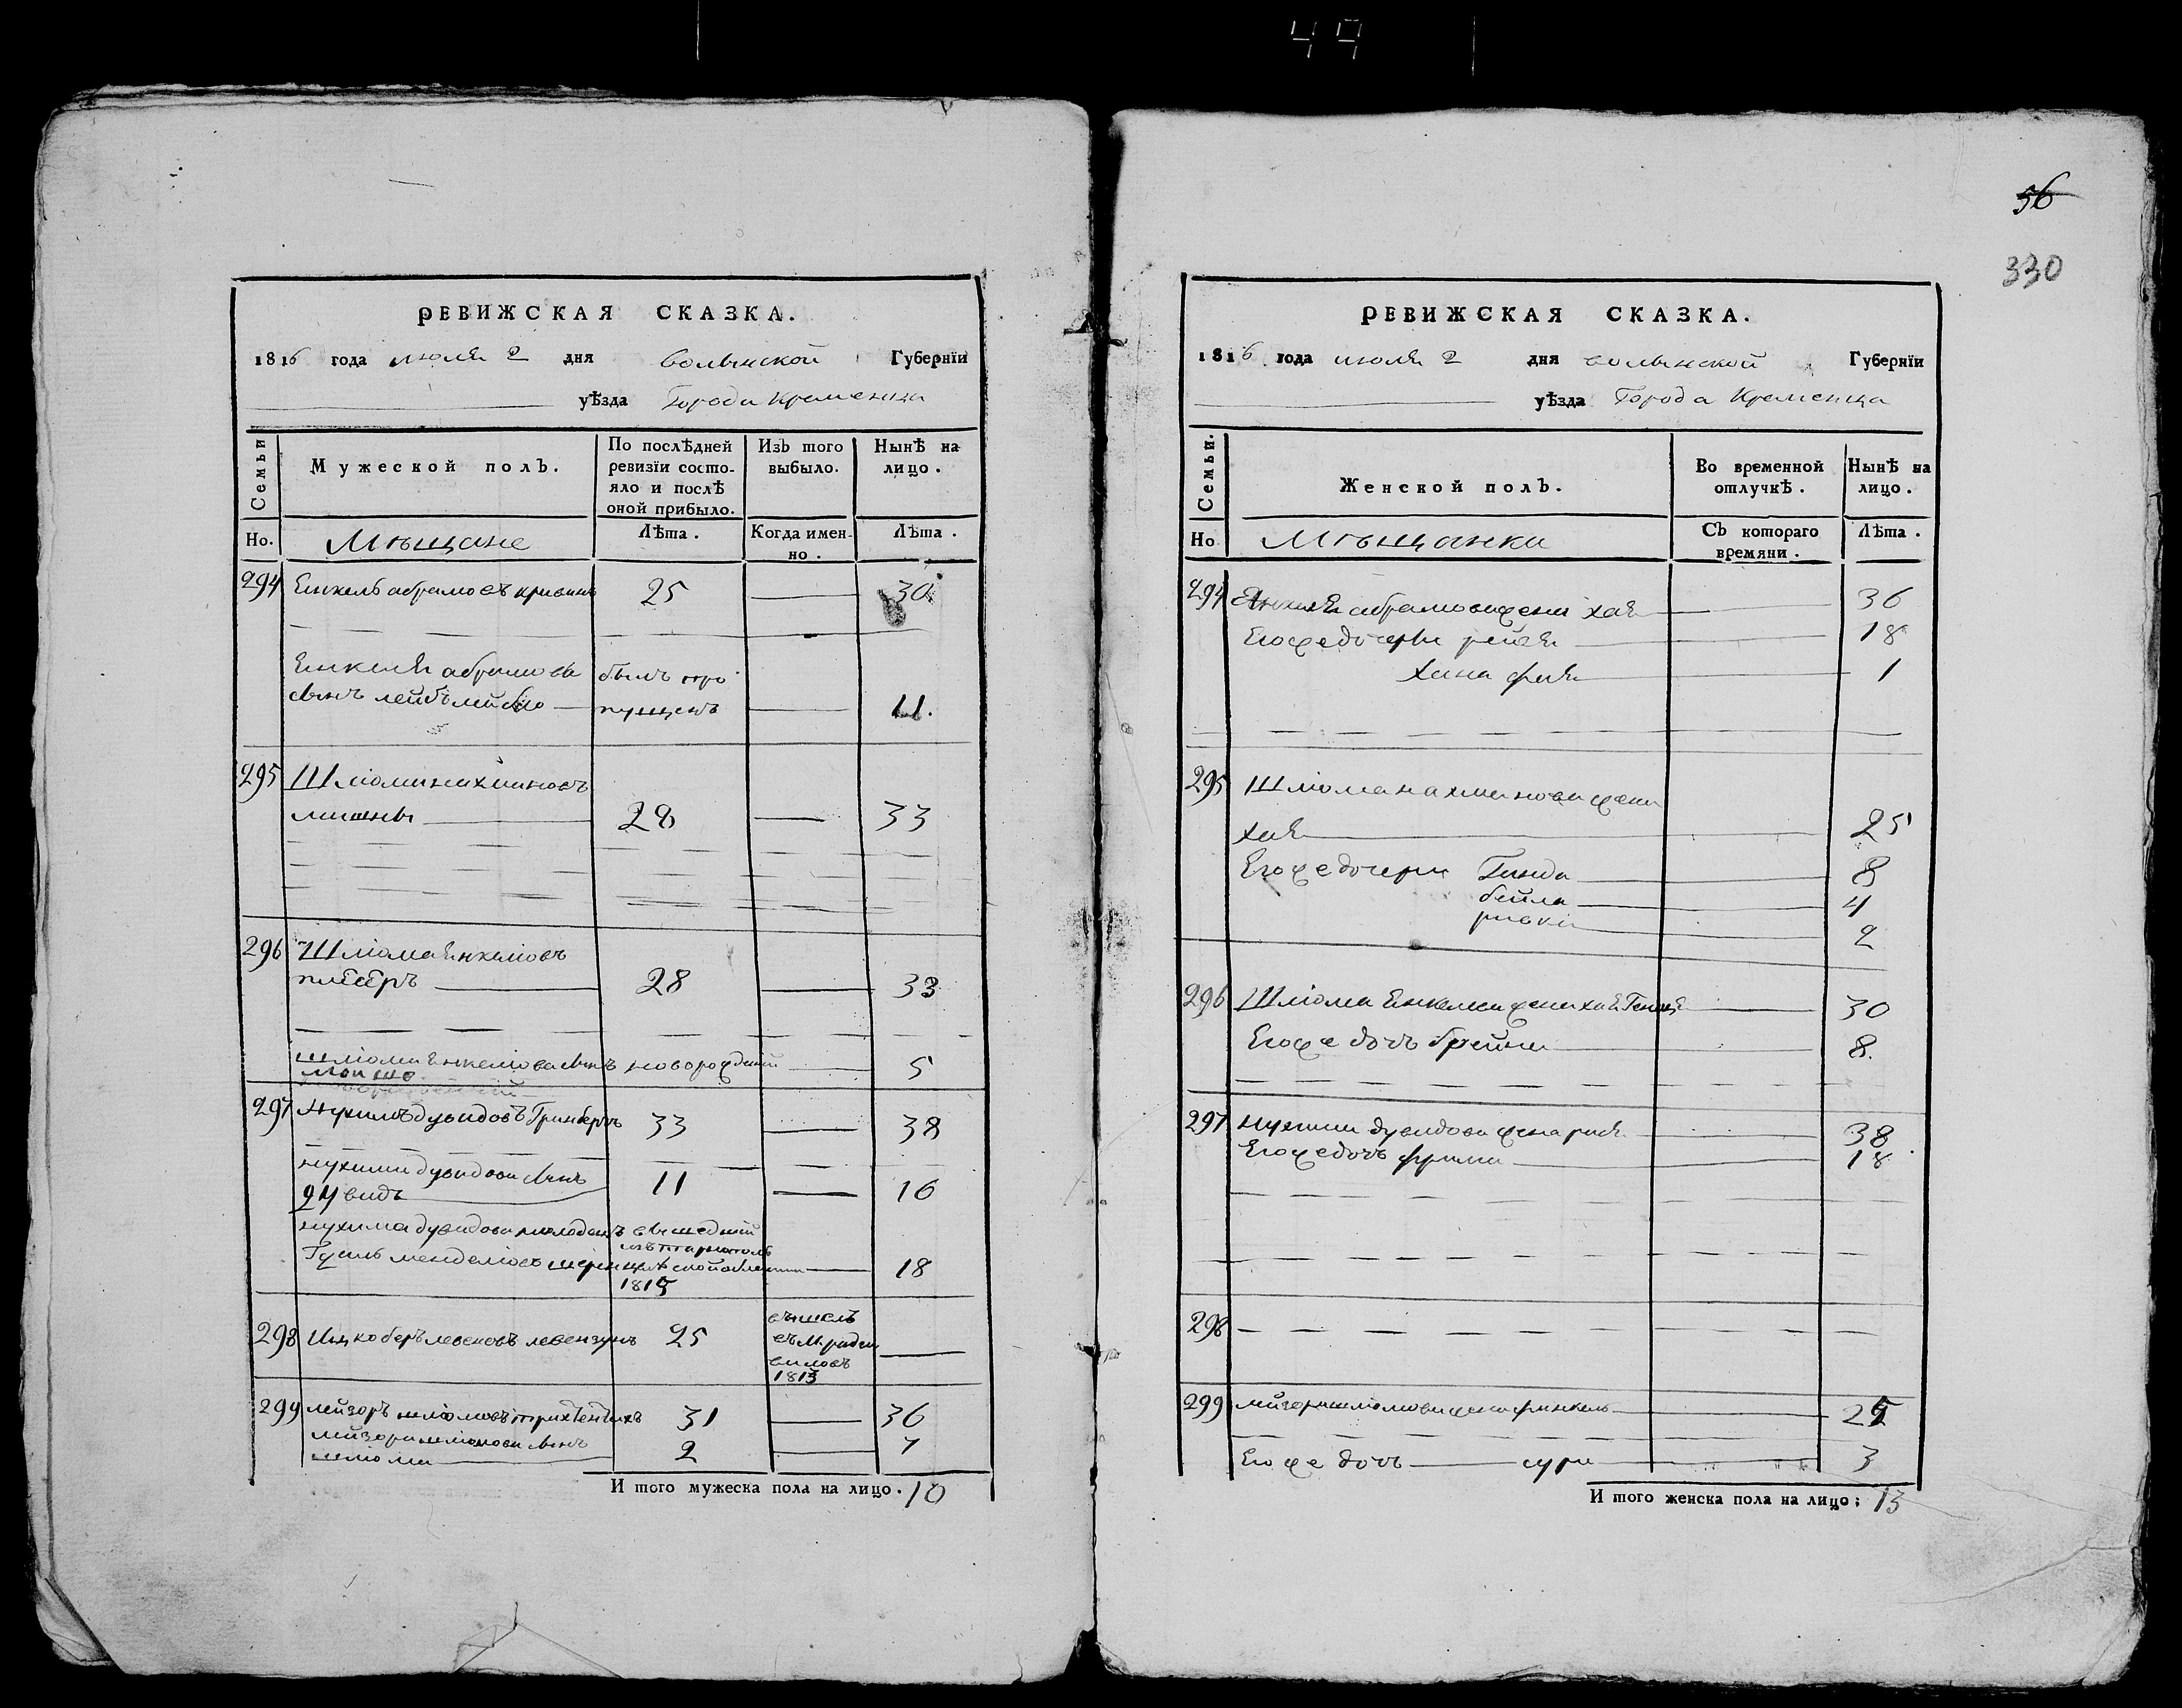 56
330
РЕВИЖСКАЯ СКАЗКА.
1816 года июля 2 дня волынской Губернїи
уѣзда Города Кременца
Семьи
Мужеской полъ.
По послѣдней ревизїи состо-
яло и послѣ
оной прибыло.
Изъ того выбыло.
Нынѣ на лицо.
Но.
Мѣщане
Лѣта.
Когда имен-
но.
Лѣта.
294 Енкель абрамовъ 25 — 30
Енкеля абрамова былъ про
сынъ лейб пущенъ — 11.
295 Шліома нахмановъ
28 — 33
296 Шліома Енкеліовъ
28 — 33
шліома Енкеліова сынъ новорожденый — 5
мошко
297 Нухимъ дувидовъ Гринбергъ 33 — 38
нухима дувидова сынъ
дувидъ 11 — 16
нухима дувидова
менделіовъ 18
1815
298 Ицко беръ левензунъ 25
вышелъ
въ М. радзи
виловъ
1813
299 лейзоръ шліомовъ 31 — 36
лейзора шліомова сынъ
шліома 2 — 7
И того мужеска пола на лицо. 10
РЕВИЖСКАЯ СКАЗКА.
1816 года июля 2 дня волынской Губернїи
уѣзда Города Кременца
Семьи.
Женской полъ.
Во временной отлучкѣ.
Нынѣ на лицо.
Но
Мѣщанки
Съ котораго
времяни.
Лѣта.
294 Енкеля абрамова жена хая 36
Егоже дочери рейзя 18
хана 1
295 Шліома нахманова жена
хая 25
Егоже дочери Гинда 8
бейла 4
ривка 2
296 Шліома Енкелева жена хая 30
Егоже дочь брейна 8.
297 нухима дувидова жена 38
Егоже дочь фрима 18
298
299 лейзора шліомова жена финкель
Егоже дочь сура 3
И того женска пола на лицо; 13